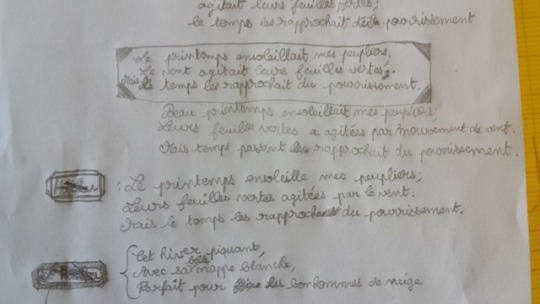 agitait leurs feuilles vertes;
le temps les rapprochait du pourrissement
Le printemps ensoleillait mes peupliers,
Le vent agitait leurs feuilles vertes;
Mais le temps les rapprochait du pourrissement.
Beau printemps ensoleillait mes peupliers,
Leurs feuilles vertes agitées par mouvement de vent.
Mais temps passent les rapprochait du pourissement.
: Le printemps ensoleille mes peupliers;
Leurs feuilles vertes agitées par le vent.
Mais le temps les rapprochent du pourrissement.
Cet hiver piquant,
Avec sa nappe blanche,
Parfait pour bonhommes de neige